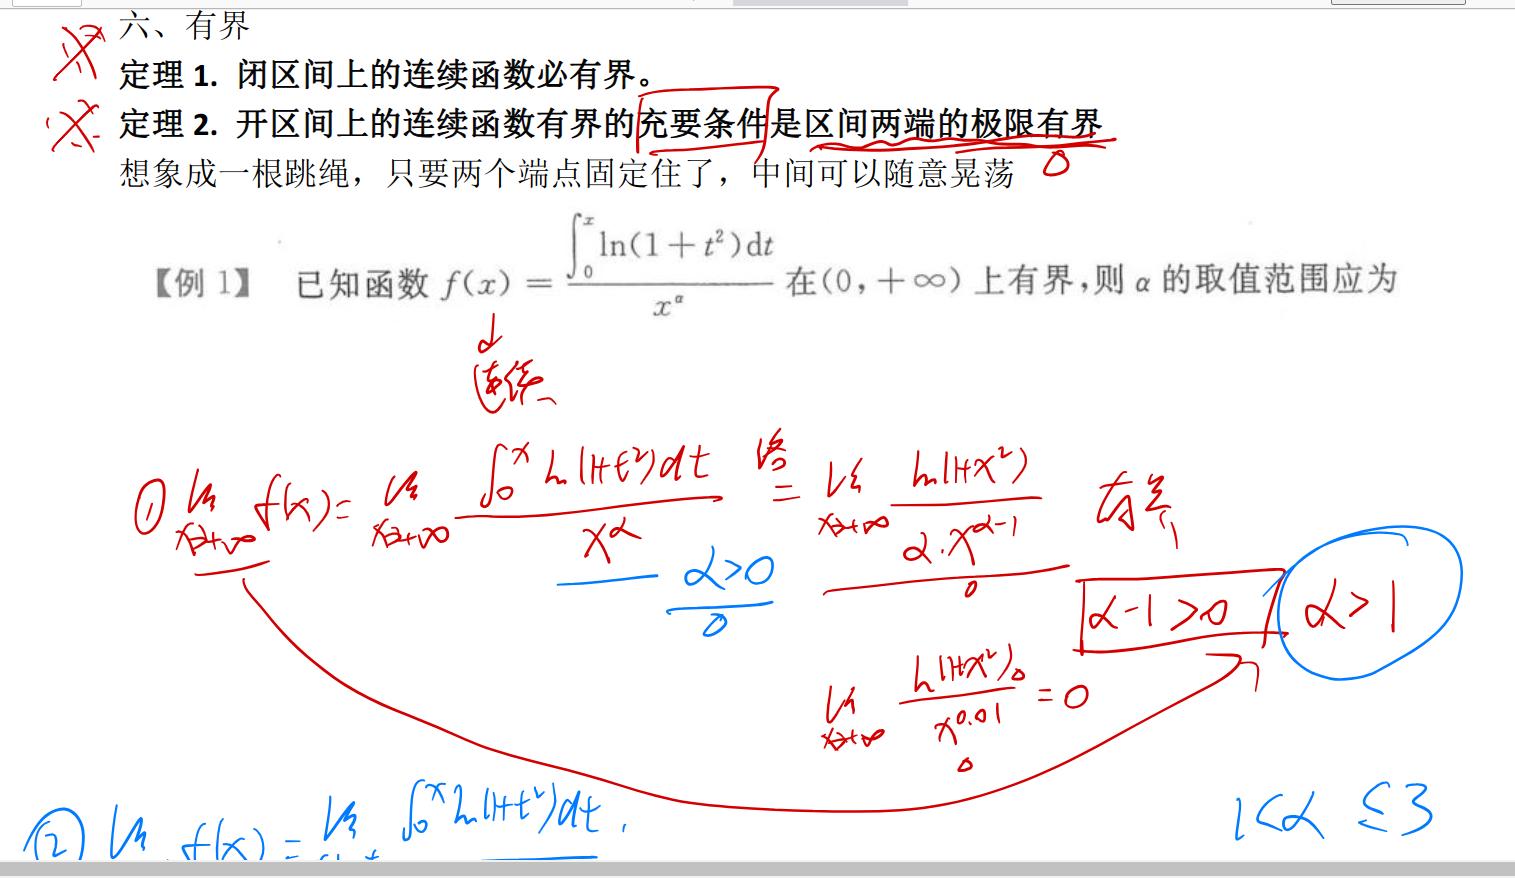 六、有界
定理 1. 闭区间上的连续函数必有界。
定理 2. 开区间上的连续函数有界的充要条件是区间两端的极限有界
想象成一根跳绳，只要两个端点固定住了，中间可以随意晃荡
【例 1】 已知函数 f(x) = ∫₀ˣ ln(1+t²)dt / x^α 在(0,+∞)上有界,则 α 的取值范围应为
连续
① lim x→+∞ f(x) = lim x→+∞ ∫₀ˣ ln(1+t²)dt / x^α 洛= lim x→+∞ ln(1+x²) / α·x^(α-1) 有界
α>0
α-1>0 α>1
lim x→+∞ ln(1+x²) / x^0.01 = 0
② lim f(x) = lim ∫₀ˣ ln(1+t²)dt
1<α≤3